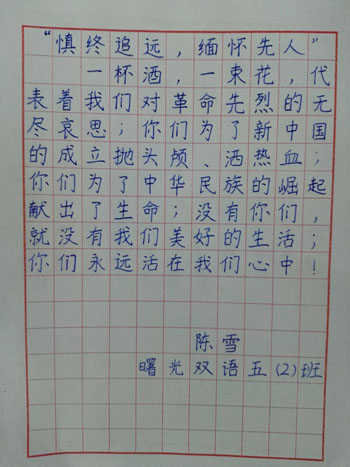 “慎终追远，缅怀先人”
一杯酒，一束花，代
表着我们对革命先烈的无
尽哀思；你们为了新中国
的成立抛头颅、洒热血；
你们为了中华民族的崛起
献出了生命；没有你们，
就没有我们美好的生活；
你们永远活在我们心中！
陈雪
曙光双语五（2）班